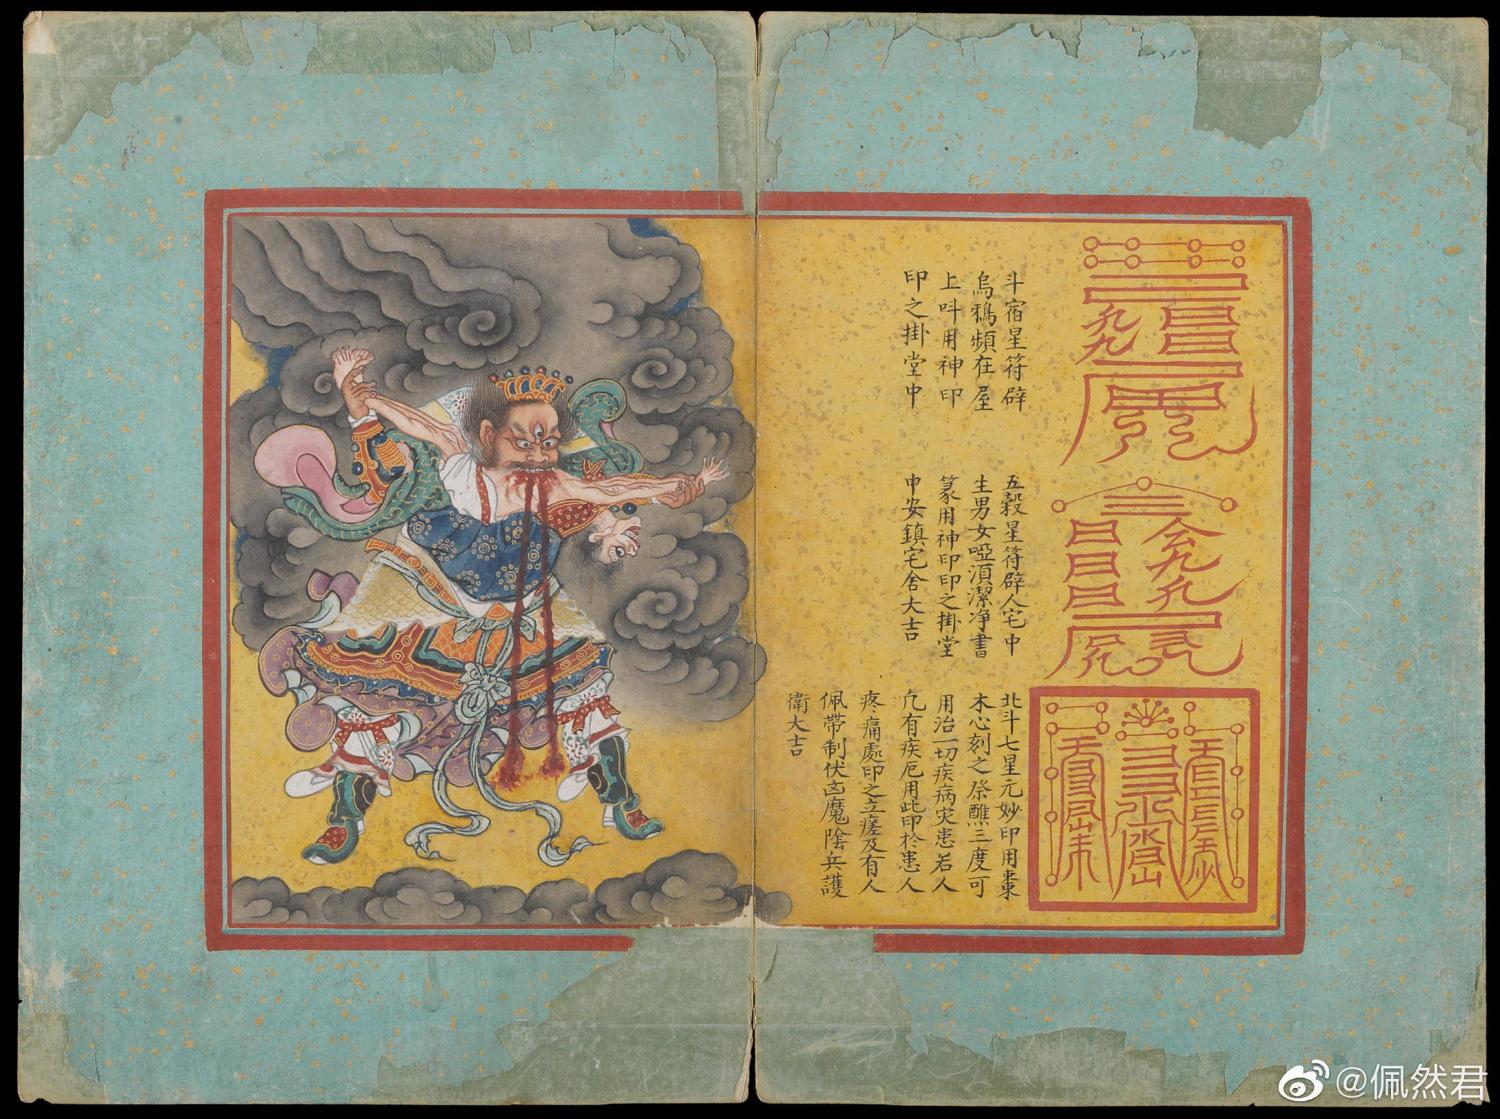 斗宿星符辟
烏鴉頻在屋
上呌用神印
印之掛堂中
五穀星符辟人宅中
生男女啞湏潔净書
篆用神印印之掛堂
中安鎮宅舍大吉
北斗七星元妙印用棗
木心刻之祭醮三度可
用治一切疾病灾患若人
凢有疾厄用此印於患人
疼痛處印之立瘥及有人
佩带制伏凶魔隂兵護
衛大吉
@佩然君